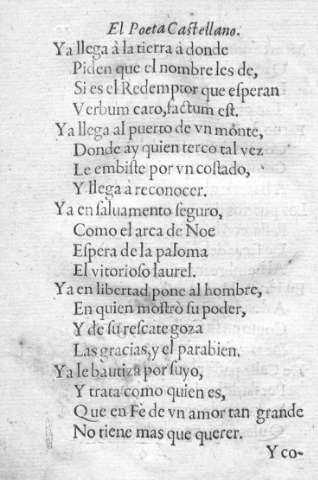 El Poeta Castellano.
Ya llega à la tierra à donde
Piden que el nombre les de,
Si es el Redemptor que esperan
Verbum caro, factum est.
Ya llega al puerto de vn monte,
Donde ay quien terco tal vez
Le embiste por vn costado,
Y llega à reconocer.
Ya en saluamento seguro,
Como el arca de Noe
Espera de la paloma
El vitorioso laurel.
Ya en libertad pone al hombre,
En quien mostrò su poder,
Y de su rescate goza
Las gracias, y el parabien.
Ya le bautiza por suyo,
Y trata como quien es,
Que en Fè de vn amor tan grande
No tiene mas que querer.
Y co-